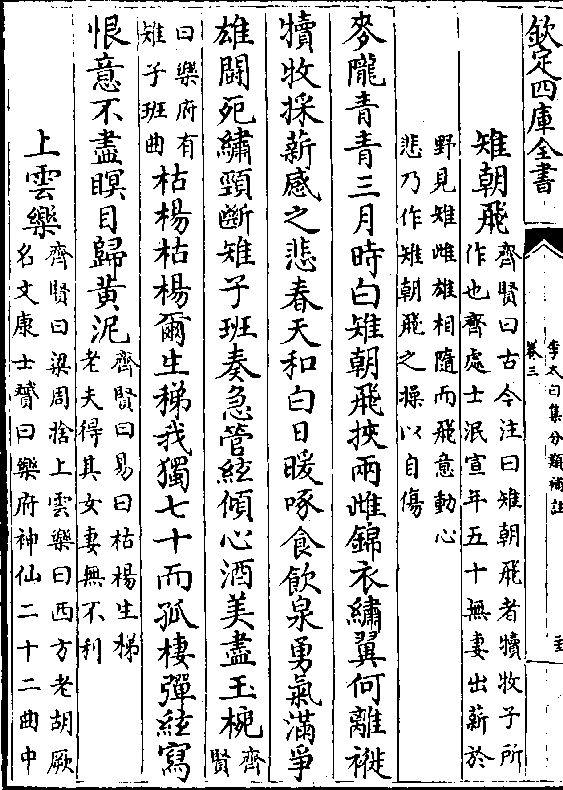 欽定四庫全書
李太白集分類補註
卷三
雉朝飛
齊賢曰古今注曰雉朝飛者犢牧子所
作也齊處士泯宣年五十無妻出薪於
野見雉雌雄相隨而飛意動心
悲乃作雉朝飛之操以自傷
麥隴青青三月時白雉朝飛挾兩雌錦衣繡翼何離褷
犢牧採薪感之悲春天和白日暖啄食飲泉勇氣滿爭
雄鬪死繡頸斷雉子班奏急管絃傾心酒美盡玉椀
齊賢
曰樂府有
雉子班曲
枯楊枯楊爾生稊我獨七十而孤棲彈絃寫
恨意不盡瞑目歸黄泥
齊賢曰易曰枯楊生稊
老夫得其女妻無不利
上雲樂
齊賢曰梁周捨上雲樂曰西方老胡厥
名文康士贇曰樂府神仙二十二曲中